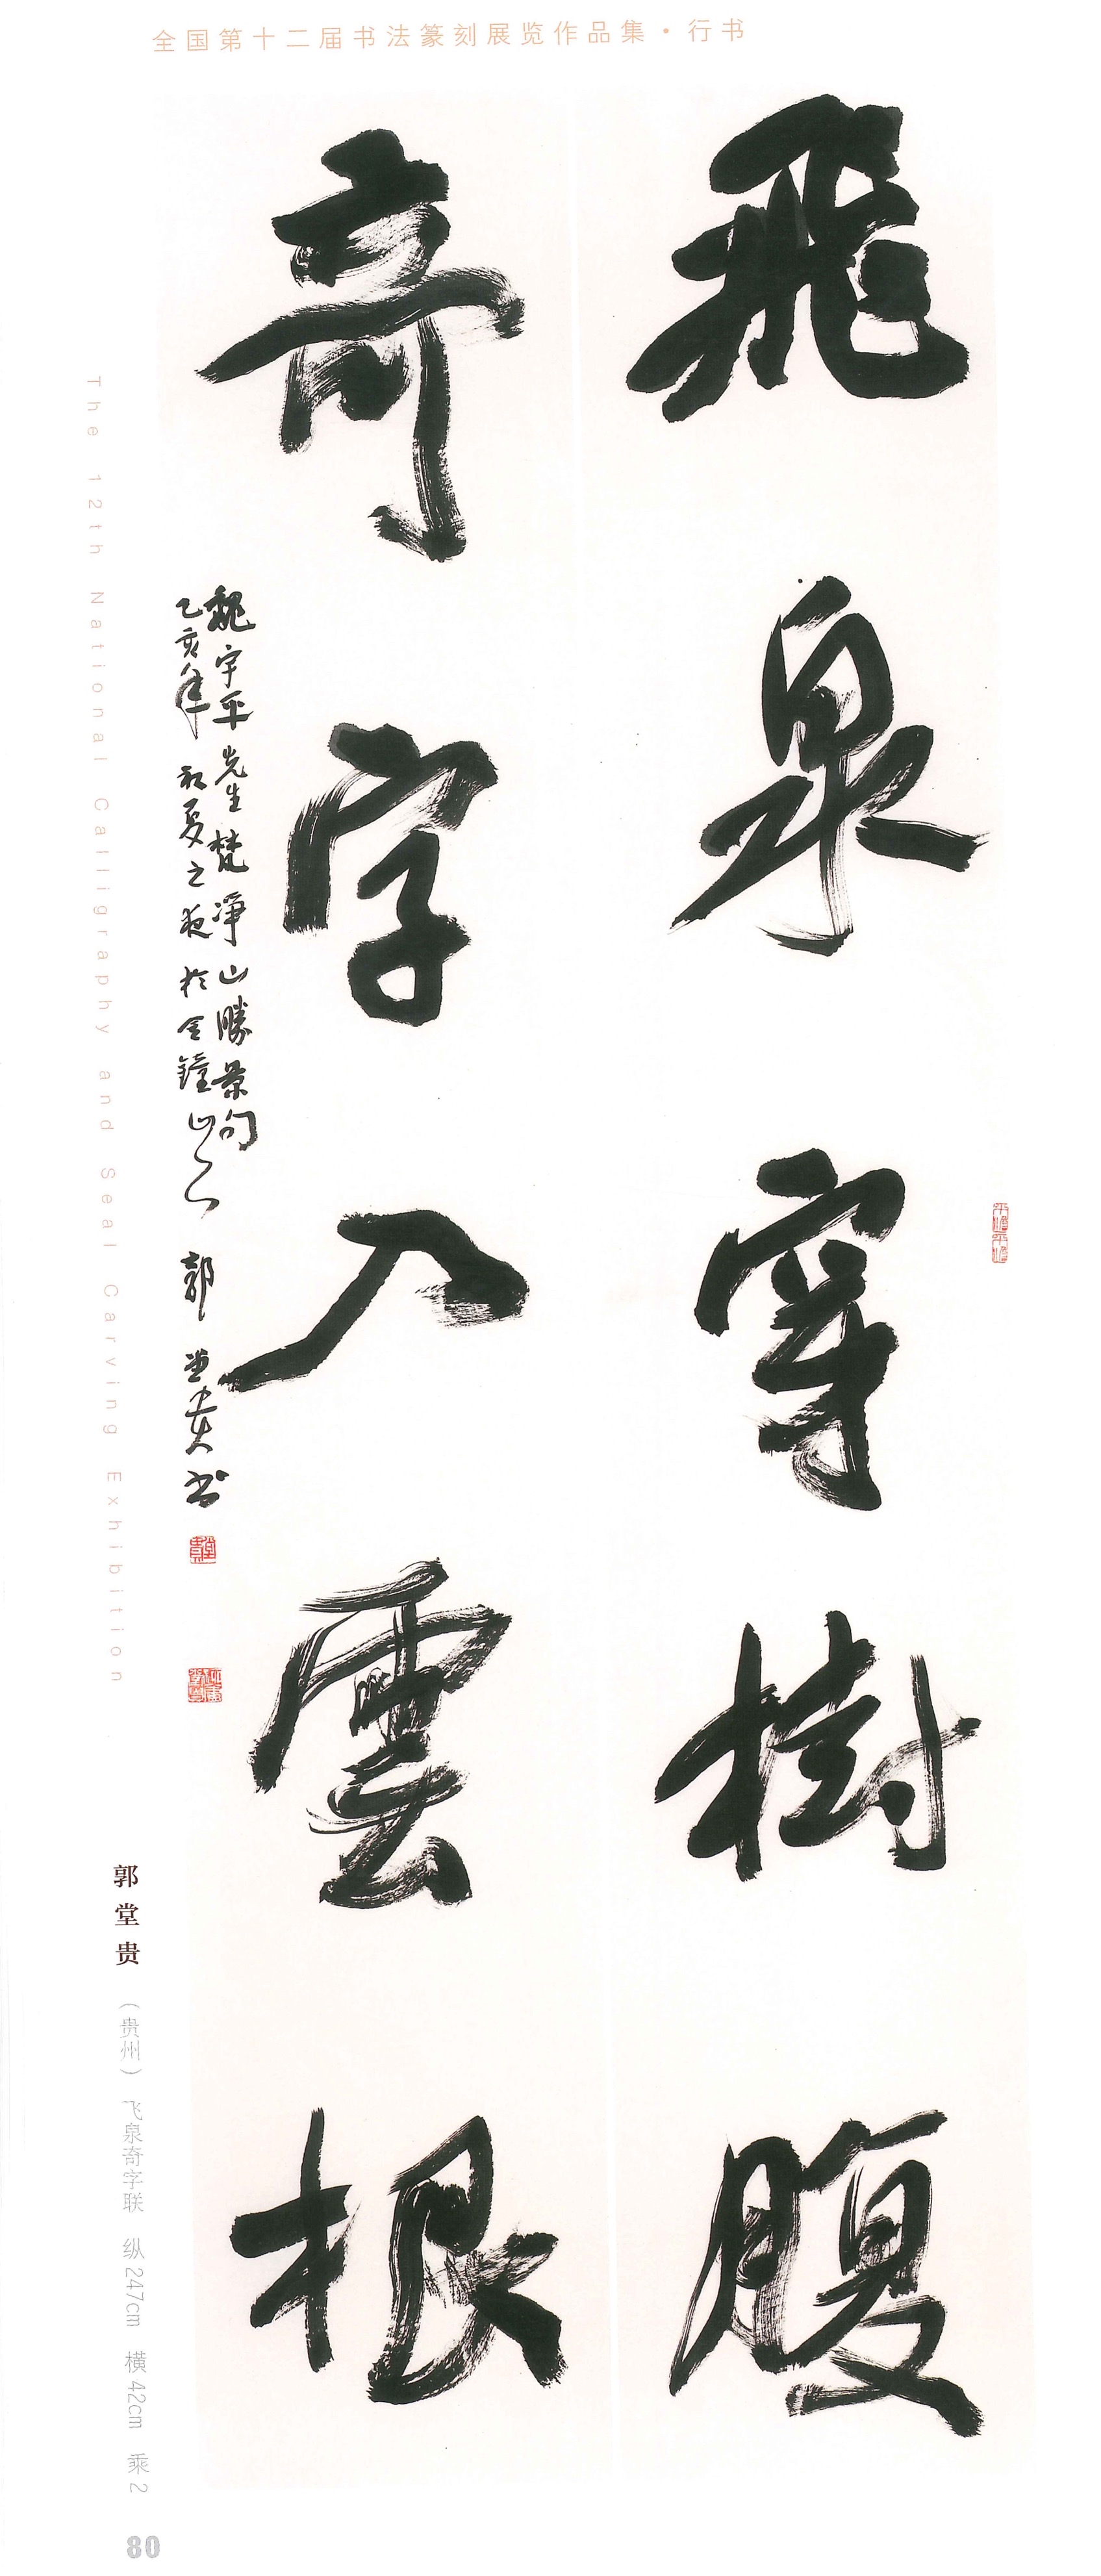 全国第十二届书法篆刻展览作品集·行书
飛泉穿樹腹
奇字入雲根
魏宇平先生梵净山勝景句
乙亥年初夏之夜於金鐘山人郭堂貴书
The 12th National Calligraphy and Seal Carving Exhibition
郭堂贵
（贵州） 飞泉奇字联 纵247cm 横42cm 乘2
80